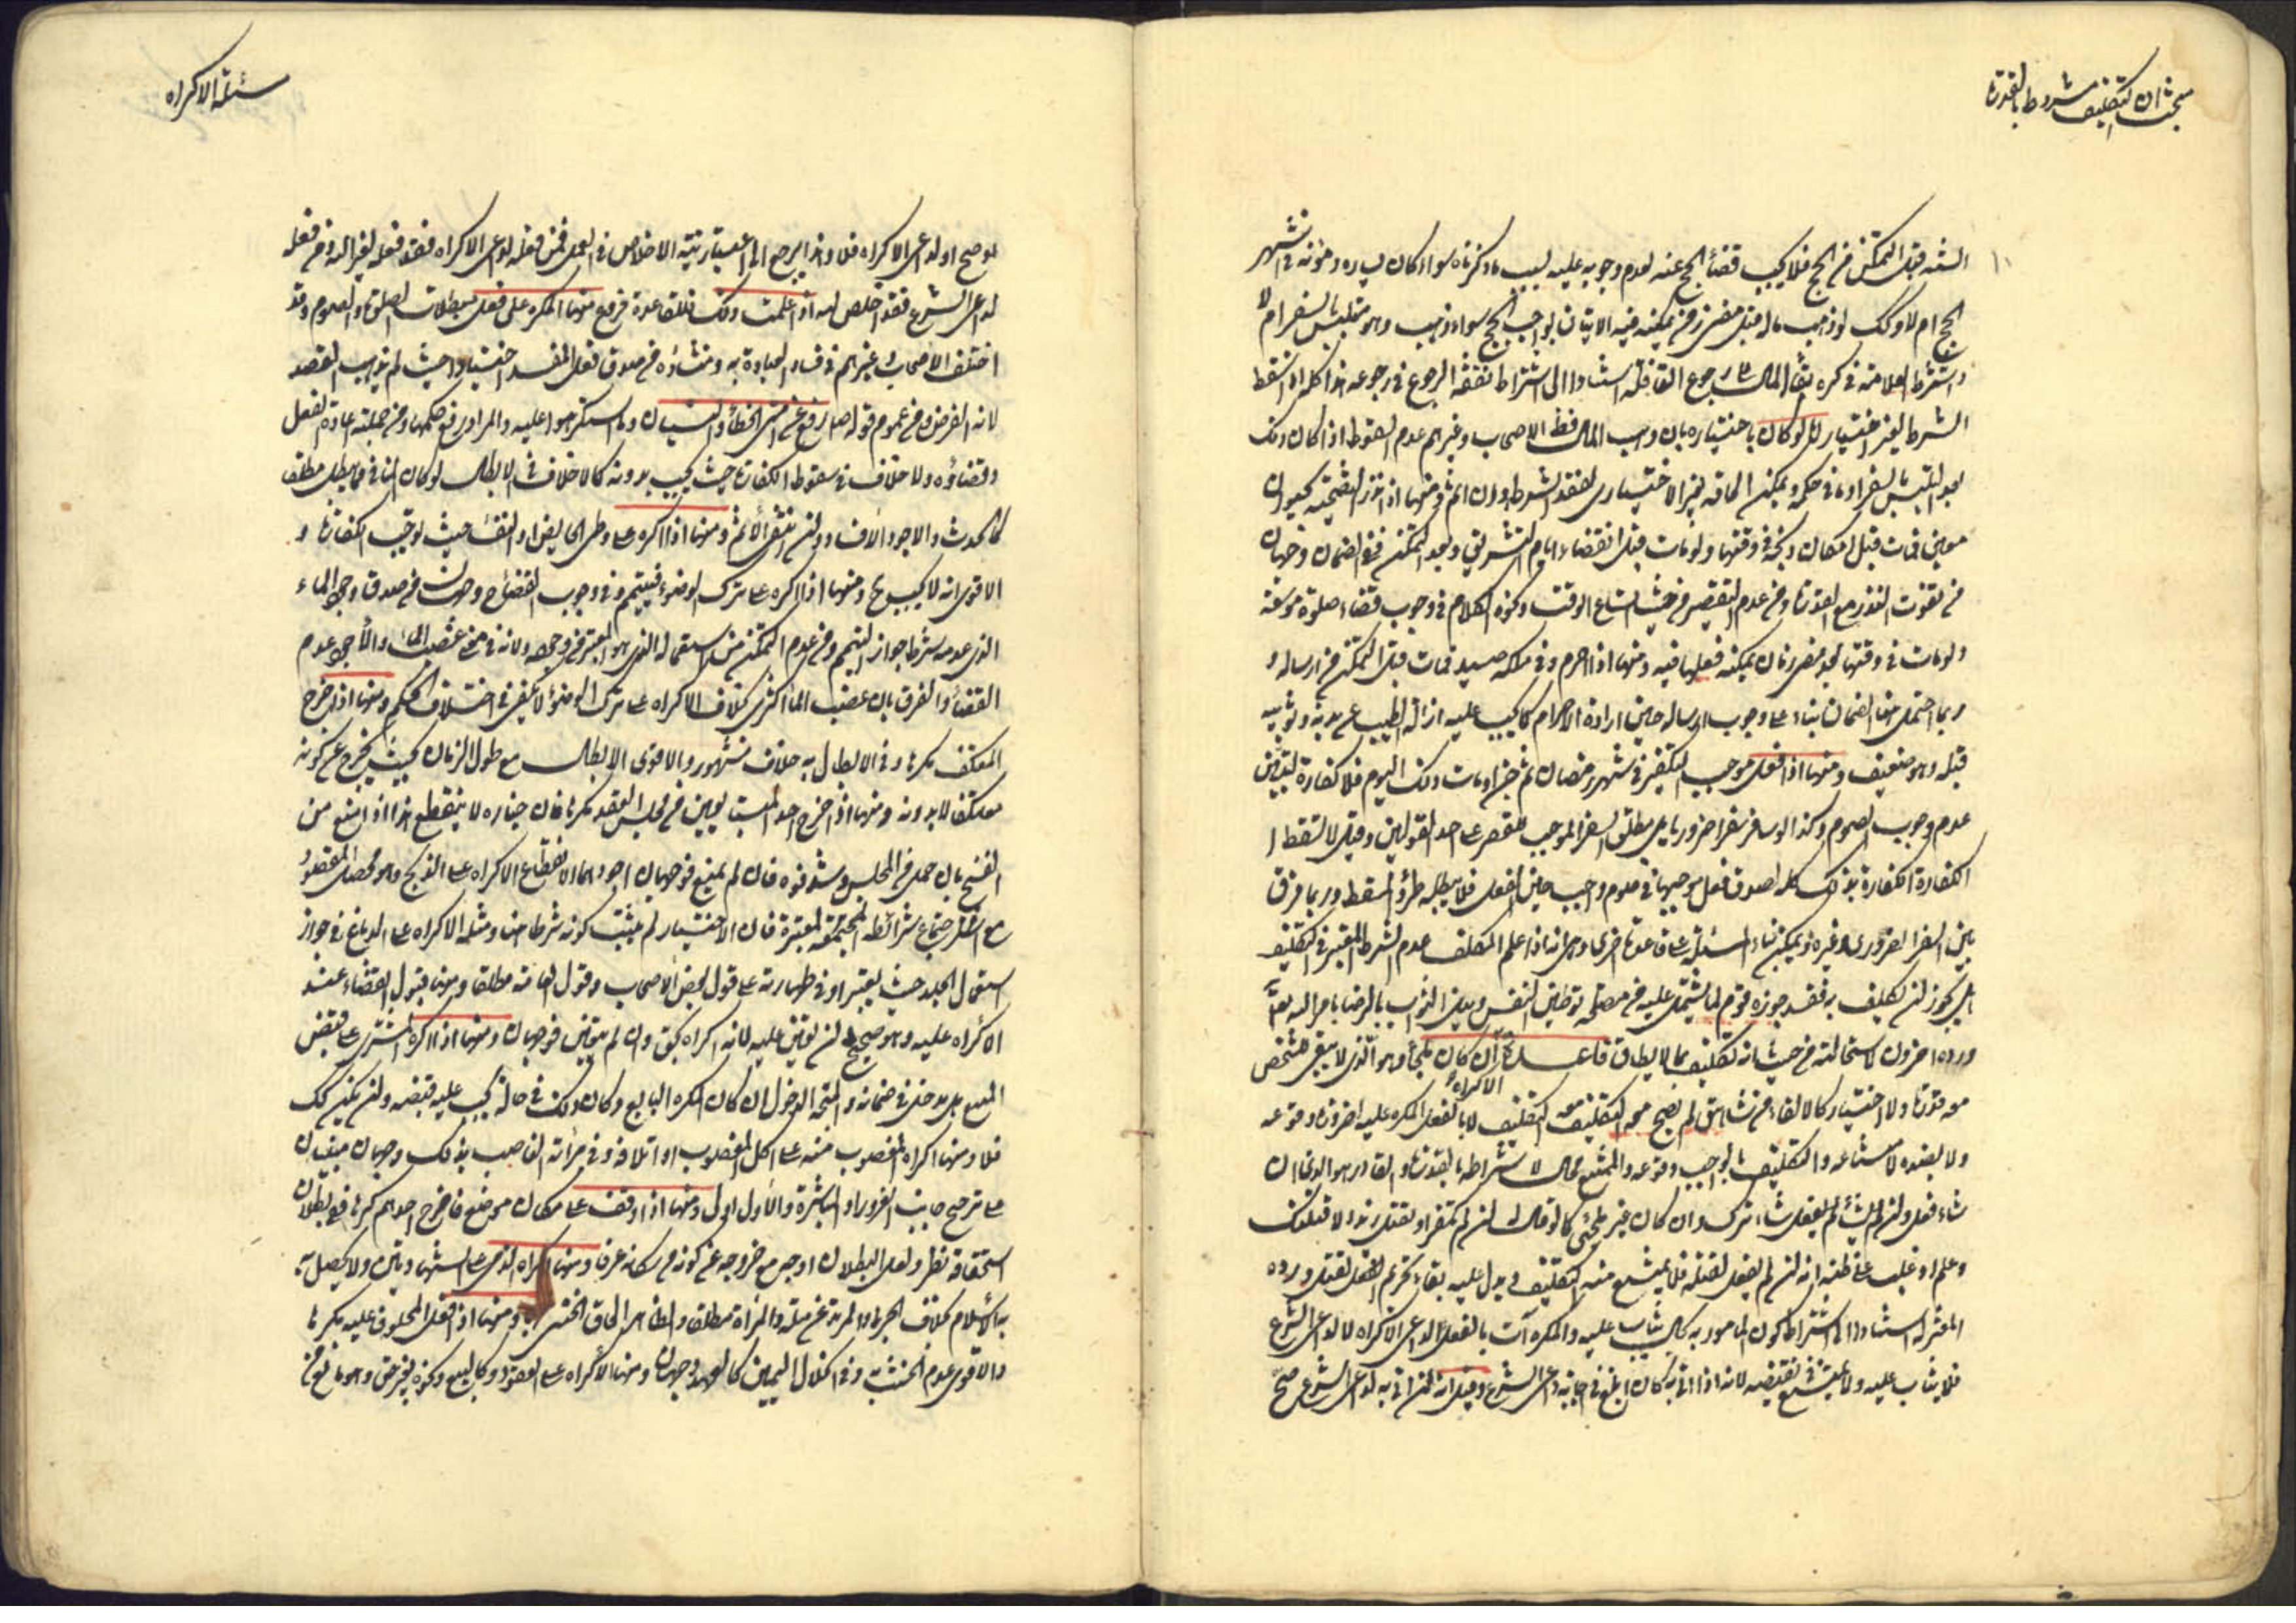 مبحث ان التكليف مشروط بالقدرة
السنة قبل التمكن من الحج فلا يجب قضاء الحج عنه لعدم وجوبه عليه لسبب ما ذكرناه سواء كان يساره ومؤنه في اشهر
الحج ام لا وكذا لو ذهب ماله قبل مضي زمن يمكنه فيه الاتيان بواجب الحج سواء ذهب وهو متلبس بالسفر ام لا
واشترط العلامة في كره بقاء المال الى رجوع القافلة استنادا الى اشتراط نفقة الرجوع في رجوعه هذا كله اذا سقط
الشرط بغير اختياره فلو كان باختياره بان وهب المال فظ الاصحاب وغيرهم عدم السقوط اذا كان ذلك
بعد التلبس بالسفر او ما في حكمه ويمكن الحاقه بغير الاختياري لفقد الشرط وان اثم ومنها اذا نذر التضحية بحيوان
معين فمات قبل امكان ذبحه في وقتها ولو مات قبل انقضاء ايام التشريق وبعد التمكن ففي الضمان وجهان
من تفوت النذر مع القدرة ومن عدم التقصير من حيث اتساع الوقت ونحوه الكلام في وجوب قضاء صلوة موسعة
ولو مات في وقتها بعد مضي زمان يمكنه فعلها فيه ومنها اذا احرم وفي ملكه صيد فمات قبل التمكن من ارساله و
ربما احتمل هنا الضمان بناء على وجوب ارساله حين ارادة الاحرام كما يجب عليه ازالة الطيب عن بدنه وثوبيه
قبله وهو ضعيف ومنها اذا فعل موجب التكفير في شهر رمضان ثم جن او مات ذلك اليوم فلا كفارة لتبين
عدم وجوب الصوم وكذا لو سافر سفرا ضروريا بل مطلق السفر الموجب للقصر على احد القولين وقيل لا تسقط ا
الكفارة الكفارة بذلك كله لصدق فعل موجبها في صوم واجب حين الفعل فلا يبطله طرؤ المسقط وربما فرق
بين السفر الضروري وغيره ويمكن بناء المسئلة على قاعدة اخرى وهي انه اذا علم المكلف عدم الشرط المعتبر في التكليف
هل يجوز لن تكليف به فقد جوزه قوم لما يشتمل عليه من مصلحة توطين النفس ونيل الثواب بالرضا بامر الله تعالى
ورده اخرون لاستحالته من حيث انه تكليف بما لا يطاق قاعدة الاكراه ان كان ملجأ وهو الذي لا يبقى للشخص
معه قدرة ولا اختيار كالالقاء من شاهق لم يصح معه التكليف لا بالفعل المكره عليه لضرورة وقوعه
ولا بضده لامتناعه والتكليف بالواجب وقوعه والممتنع محال لاشتراطه بالقدرة والقادر هو الذي ان
شاء فعل ولن لم يشأ لم يفعل شاء ترك وان كان غير ملجئ كما لو قال له لن لم تكفر او تقتل زيدا لا قتلتك
وعلم او غلب على ظنه انه لن لم يفعل لقتله فلا يمتنع منه التكليف ويدل عليه بقاء تحريم الفعل لقتل ورده
المعتزلة استنادا الى اشتراط كون المامور به بحال يثاب عليه والمكره آت بالفعل لداعي الاكراه لا لداعي الشرع
فلا يثاب عليه ولا يمتنع في نقيضه لانه اذا اتى به كان ابلغ في اجابة داعي الشرع وقيل انه لن اتى به لداعي الشرع صح
مسئلة الاكراه
او لداعي الاكراه فلا وهذا يرجع الى اعتبار نية الاخلاص في العمل فمن فعله لداعي الاكراه فقد فعله لغير الله ومن فعله
لداعي الشرع فقد اخلص لله اذا علمت ذلك فللقاعدة فروع منها المكره على فعل مبطلات الصلوة والصوم وقد
اختلف الاصحاب وغيرهم في فساد العبادة به ومنشأه من صدق فعل المفسد اختيارا حيث لم يذهب القصد
لانه الفرض ومن عموم قوله صلع رفع عن امتي الخطأ والنسيان وما استكرهوا عليه والمراد رفع حكمها ومن جملته اعادة الفعل
وقضاؤه ولا خلاف في سقوط الكفارة حيث يجب بدونه كما لا خلاف في الابطال لو كان المنافي مما يبطل مطلقا
كالحدث والاجود الافساد ولن انتفى الاثم ومنها اذا اكره على وطي الحايض او النفساء حيث توجب الكفارة و
الاقوى انه لا يجب بها ومنها اذا اكره على ترك الوضوء فيتيمم وفي وجوب القضاء وجهان من صدق وجود الماء
الذي عدمه شرط جواز التيمم ومن عدم التمكن من استعماله الذي هو المعتبر في وجوده ولانه في معنى غصب الماء والاجود عدم
القضاء والفرق بان غصب الماء اكثري بخلاف الاكراه على ترك الوضوء لا يكفي في اختلاف الحكم ومنها اذا اخرج
المعتكف مكرها وفي الابطال به خلاف مشهور والاقوى الابطال مع طول الزمان بحيث يخرج عن كونه
معتكفا لا بدونه ومنها اذا اخرج احد المتبايعين من مجلس العقد مكرها فان خياره لا ينقطع هذا اذا منع من
الفسخ بان حمل من المجلس وسد فوه فان لم يمنع فوجهان اجودهما الانقطاع الاكراه على الذبح وهو محصل للمقصود
مع اجتماع شرائطه المعتبرة فان الاختيار لم يثبت كونه شرطا هنا ومثله الاكراه على الدباغ في جواز
استعمال الجلد حيث يعتبر او في طهارته على قول بعض الاصحاب وقول العامة مطلقا ومنها قبول القضاء عند
الاكراه عليه وهو صحيح لن تعين عليه لانه اكراه بحق وان لم يتعين فوجهان ومنها اذا اكره المشتري على قبض
المبيع هل يدخل في ضمانه والمتجه الدخول ان كان المكره البايع وكان ذلك في حالة يجب عليه قبضه ولن لم يكن كك
فلا ومنها اكراه المغصوب منه على اكل المغصوب او اتلافه وفي برائة الغاصب بذلك وجهان مبنيان
على ترجيح جانب الغرور او المباشرة والاول اولى ومنها اذا وقف على سكان موضع فاخرج احدهم كرها ففي بطلان
استحقاقه نظر ولعل البطلان اوجه مع خروجه عن كونه من سكانه عرفا ومنها اكراه الذمي على الشهادتين ولا يحصل به
به الاسلام بخلاف الحربي والمرتد عن ملة والمراة مطلقا والظاهر الحاق الخنثى بها ومنها اذا فعل المحلوف عليه مكرها
والاقوى عدم الحنث به وفي انحلال اليمين كالعهد وجهان ومنها الاكراه على العقود كالبيع ونحوه بغير حق وهو مانع من